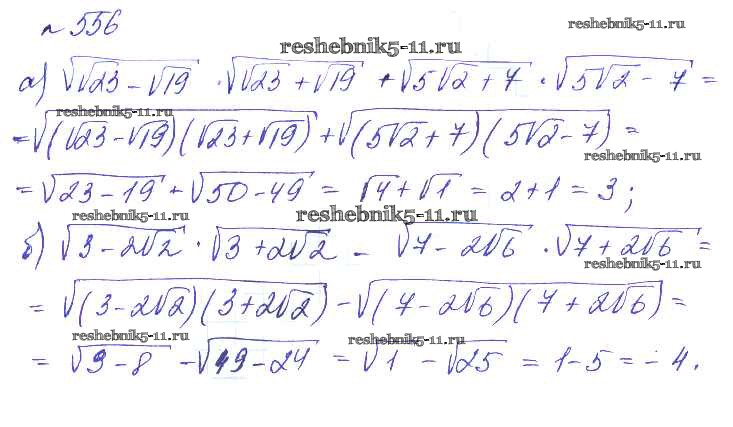 № 556
reshebnik5-11.ru
reshebnik5-11.ru
а) √(√23 - √19) · √(√23 + √19) + √(5√2 + 7) · √(5√2 - 7) =
reshebnik5-11.ru
= √((√23 - √19)(√23 + √19)) + √((5√2 + 7)(5√2 - 7)) =
reshebnik5-11.ru
= √(23 - 19) + √(50 - 49) = √4 + √1 = 2 + 1 = 3;
reshebnik5-11.ru
reshebnik5-11.ru
б) √(3 - 2√2) · √(3 + 2√2) - √(7 - 2√6) · √(7 + 2√6) =
reshebnik5-11.ru
= √((3 - 2√2)(3 + 2√2)) - √((7 - 2√6)(7 + 2√6)) =
reshebnik5-11.ru
reshebnik5-11.ru
= √(9 - 8) - √(49 - 24) = √1 - √25 = 1 - 5 = -4.